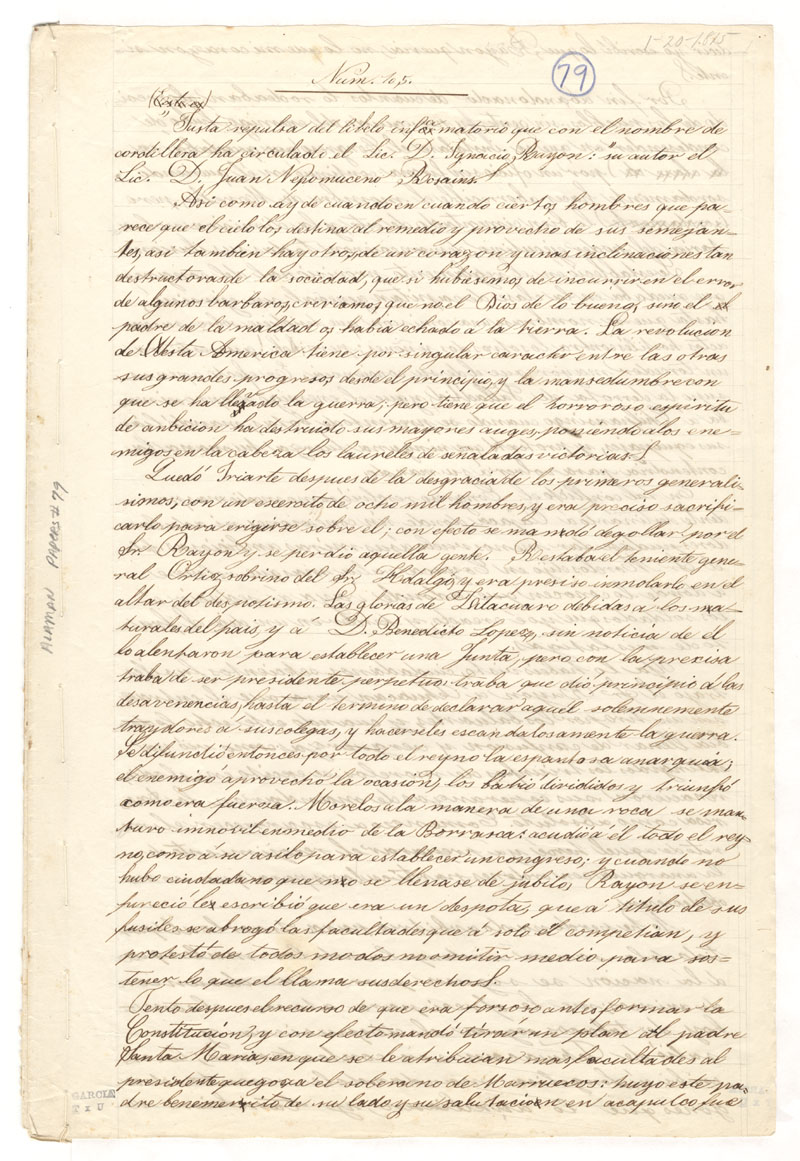 1-20-1815
79
Num. 105.
(Justa)
"Justa repulsa del libelo infamatorio que con el nombre de
cordillera ha circulado el Lic. D. Ignacio Rayon: "su autor el
Lic. D. Juan Nepomuceno Rosains.
Asi como ay de cuando en cuando ciertos hombres que pa-
rece que el cielo los destina al remedio y provecho de sus semejan-
tes, asi tambien hay otros, de un corazon y unas inclinaciones tan
destructoras de la sociedad, que si hubiesemos de incurrir en el error
de algunos barbaros, creriamos, que no el Dios de lo bueno, sino el
padre de la maldad os habia echado á la tierra. La revolucion
de esta America tiene por singular caracter entre las otras
sus grandes progresos desde el principio, y la mansedumbre con
que se ha llevado la guerra; pero tiene que el horroroso espiritu
de anbicion ha destruido sus mayores auges, poniendo a los ene-
migos en la cabeza los laureles de señaladas victorias.
Quedó Iriarte despues de la desgracia de los primeros generali-
simos, con un exercito de ocho mil hombres, y era preciso sacrifi-
carlo para erigirse sobre el; con efecto se mandó degollar por el
Sr. Rayon y se perdio aquella gente. Restaba el teniente gene-
ral Ortiz, sobrino del Sr. Hidalgo, y era presiso inmolarlo en el
altar del despotismo. Las glorias de Zitacuaro debidas a los na-
turales del pais, y á D. Benedicto Lopez, sin noticia de él
lo alentaron para establecer una Junta, pero con la precisa
traba de ser presidente perpetuo: traba que dió principio á las
desavenencias, hasta el termino de declarar aquel solemnemente
traydores á sus colegas, y hacerseles escandalosamente la guerra.
Se difundió entonces por todo el reyno la espantosa anarquia;
el enemigo aprovechó la ocasion, los batió divididos y triunfó
como era fuersa. Morelos a la manera de una roca se man-
tuvo inmovil en medio de la Borrasca: acudió á él todo el rey-
no, como á su asilo para establecer un congreso; y cuando no
hubo ciudadano que no se llenase de jubilo, Rayon se en-
fureció le escribió que era un despota, que á titulo de sus
fusiles se abrogó las facultades que á solo él competian, y
protestó de todos modos no omitir medio para sos-
tener lo que el llama sus derechos.
Tento despues el recurso de que era forsoso antes formar la
Constitucion, y con efecto mandó tirar un plan al padre
Santa Maria, en que se le atribuian mas facultades al
presidente que goza el soberano de Marruecos: huyo este pa-
dre benemerito de su lado y su salutacion en acapulco fue
ALAMAN PAPERS #79
GARCIA
T x U